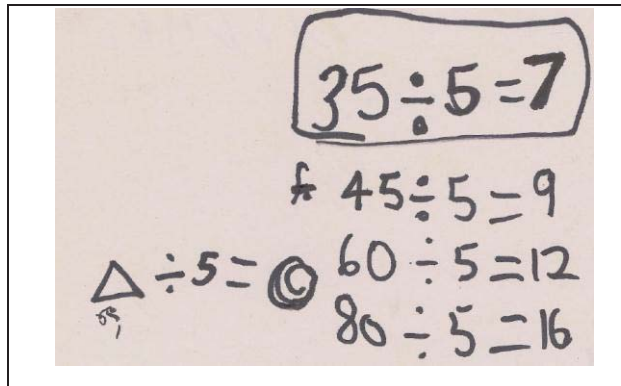 35÷5=7
45÷5=9
60÷5=12
△÷5=◎
80÷5=16